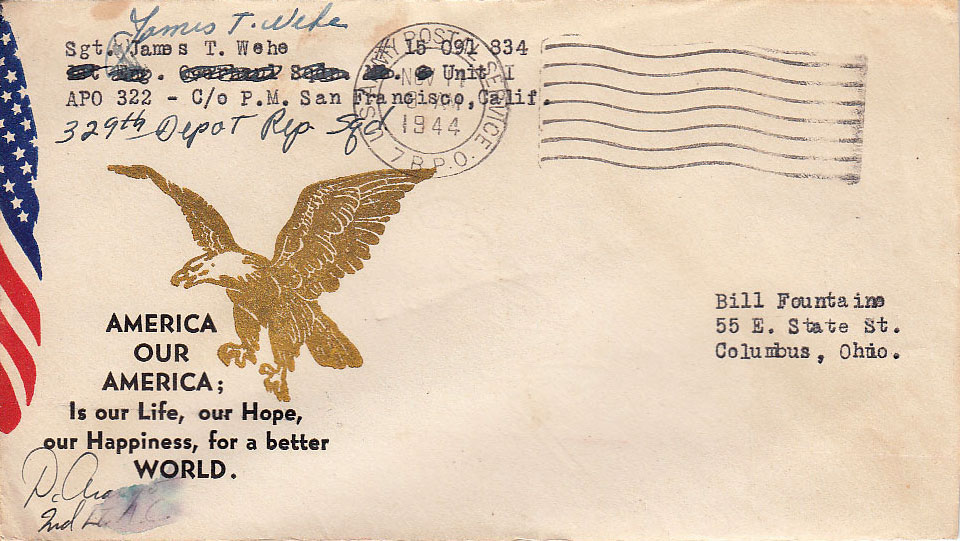 James T. Wehe
Sgt. James T. Wehe 15 091 834
Unit I
APO 322 - C/o P.M. San Francisco, Calif.
329th Depot Rep Sqd
U.S. ARMY POSTAL SERVICE
NOV
AM
1944
7 B.P.O.
Bill Fountaine
55 E. State St.
Columbus, Ohio.
AMERICA
OUR
AMERICA;
Is our Life, our Hope,
our Happiness, for a better
WORLD.
2nd Lt. A.C.